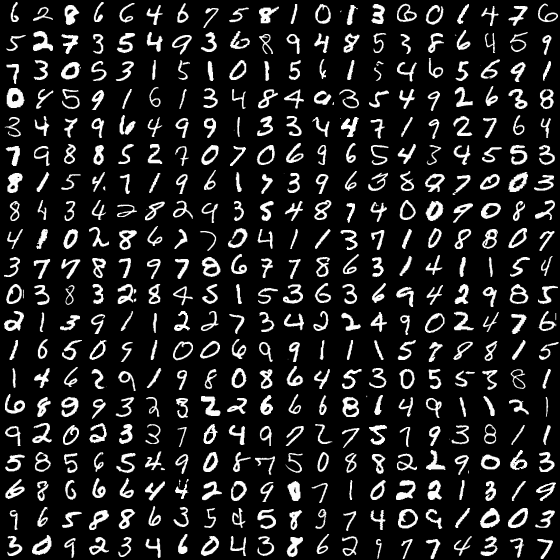 6 2 8 6 6 4 6 7 5 8 1 0 1 3 6 0 1 4 7 6
5 2 7 3 5 4 9 3 6 8 9 4 8 5 3 8 6 4 5 9
7 3 0 5 3 1 5 1 0 1 5 6 1 5 4 6 5 6 9 1
0 8 5 9 1 6 1 3 4 8 4 0 3 5 4 9 2 6 3 8
3 4 7 9 6 4 9 9 1 3 3 4 4 7 1 9 2 7 6 4
7 9 8 8 5 2 7 0 7 0 6 9 6 5 4 3 4 5 5 3
8 1 5 4 7 1 9 6 1 7 3 9 6 3 8 9 7 0 0 3
8 4 3 4 2 8 2 9 3 5 4 8 7 4 0 0 9 0 8 2
4 1 0 2 8 6 7 0 4 1 1 3 7 1 0 8 8 0 7
3 7 7 8 7 9 7 8 6 7 7 8 6 3 1 4 1 1 5 4
0 3 8 3 2 8 4 5 1 5 3 6 3 6 9 4 2 9 8 5
2 1 3 9 1 1 2 2 7 3 4 2 2 4 9 0 2 4 7 6
1 6 5 0 9 1 0 0 6 9 9 1 1 1 5 7 8 8 1 5
1 4 6 2 9 1 9 8 0 8 6 4 5 3 0 5 5 3 8 1
6 8 9 9 3 2 3 2 2 6 6 6 8 1 4 9 1 1 2 1
9 2 0 2 3 3 7 0 4 9 7 2 7 5 7 9 3 8 1 1
5 8 5 6 5 4 9 0 8 7 5 0 8 8 2 2 9 0 6 3
6 8 6 6 6 4 4 2 0 9 0 7 1 0 2 2 1 3 1 9
9 6 5 8 8 6 3 5 4 5 8 9 7 4 0 9 1 0 0 3
3 0 9 2 3 4 6 0 4 3 8 6 2 9 7 7 4 3 7 7